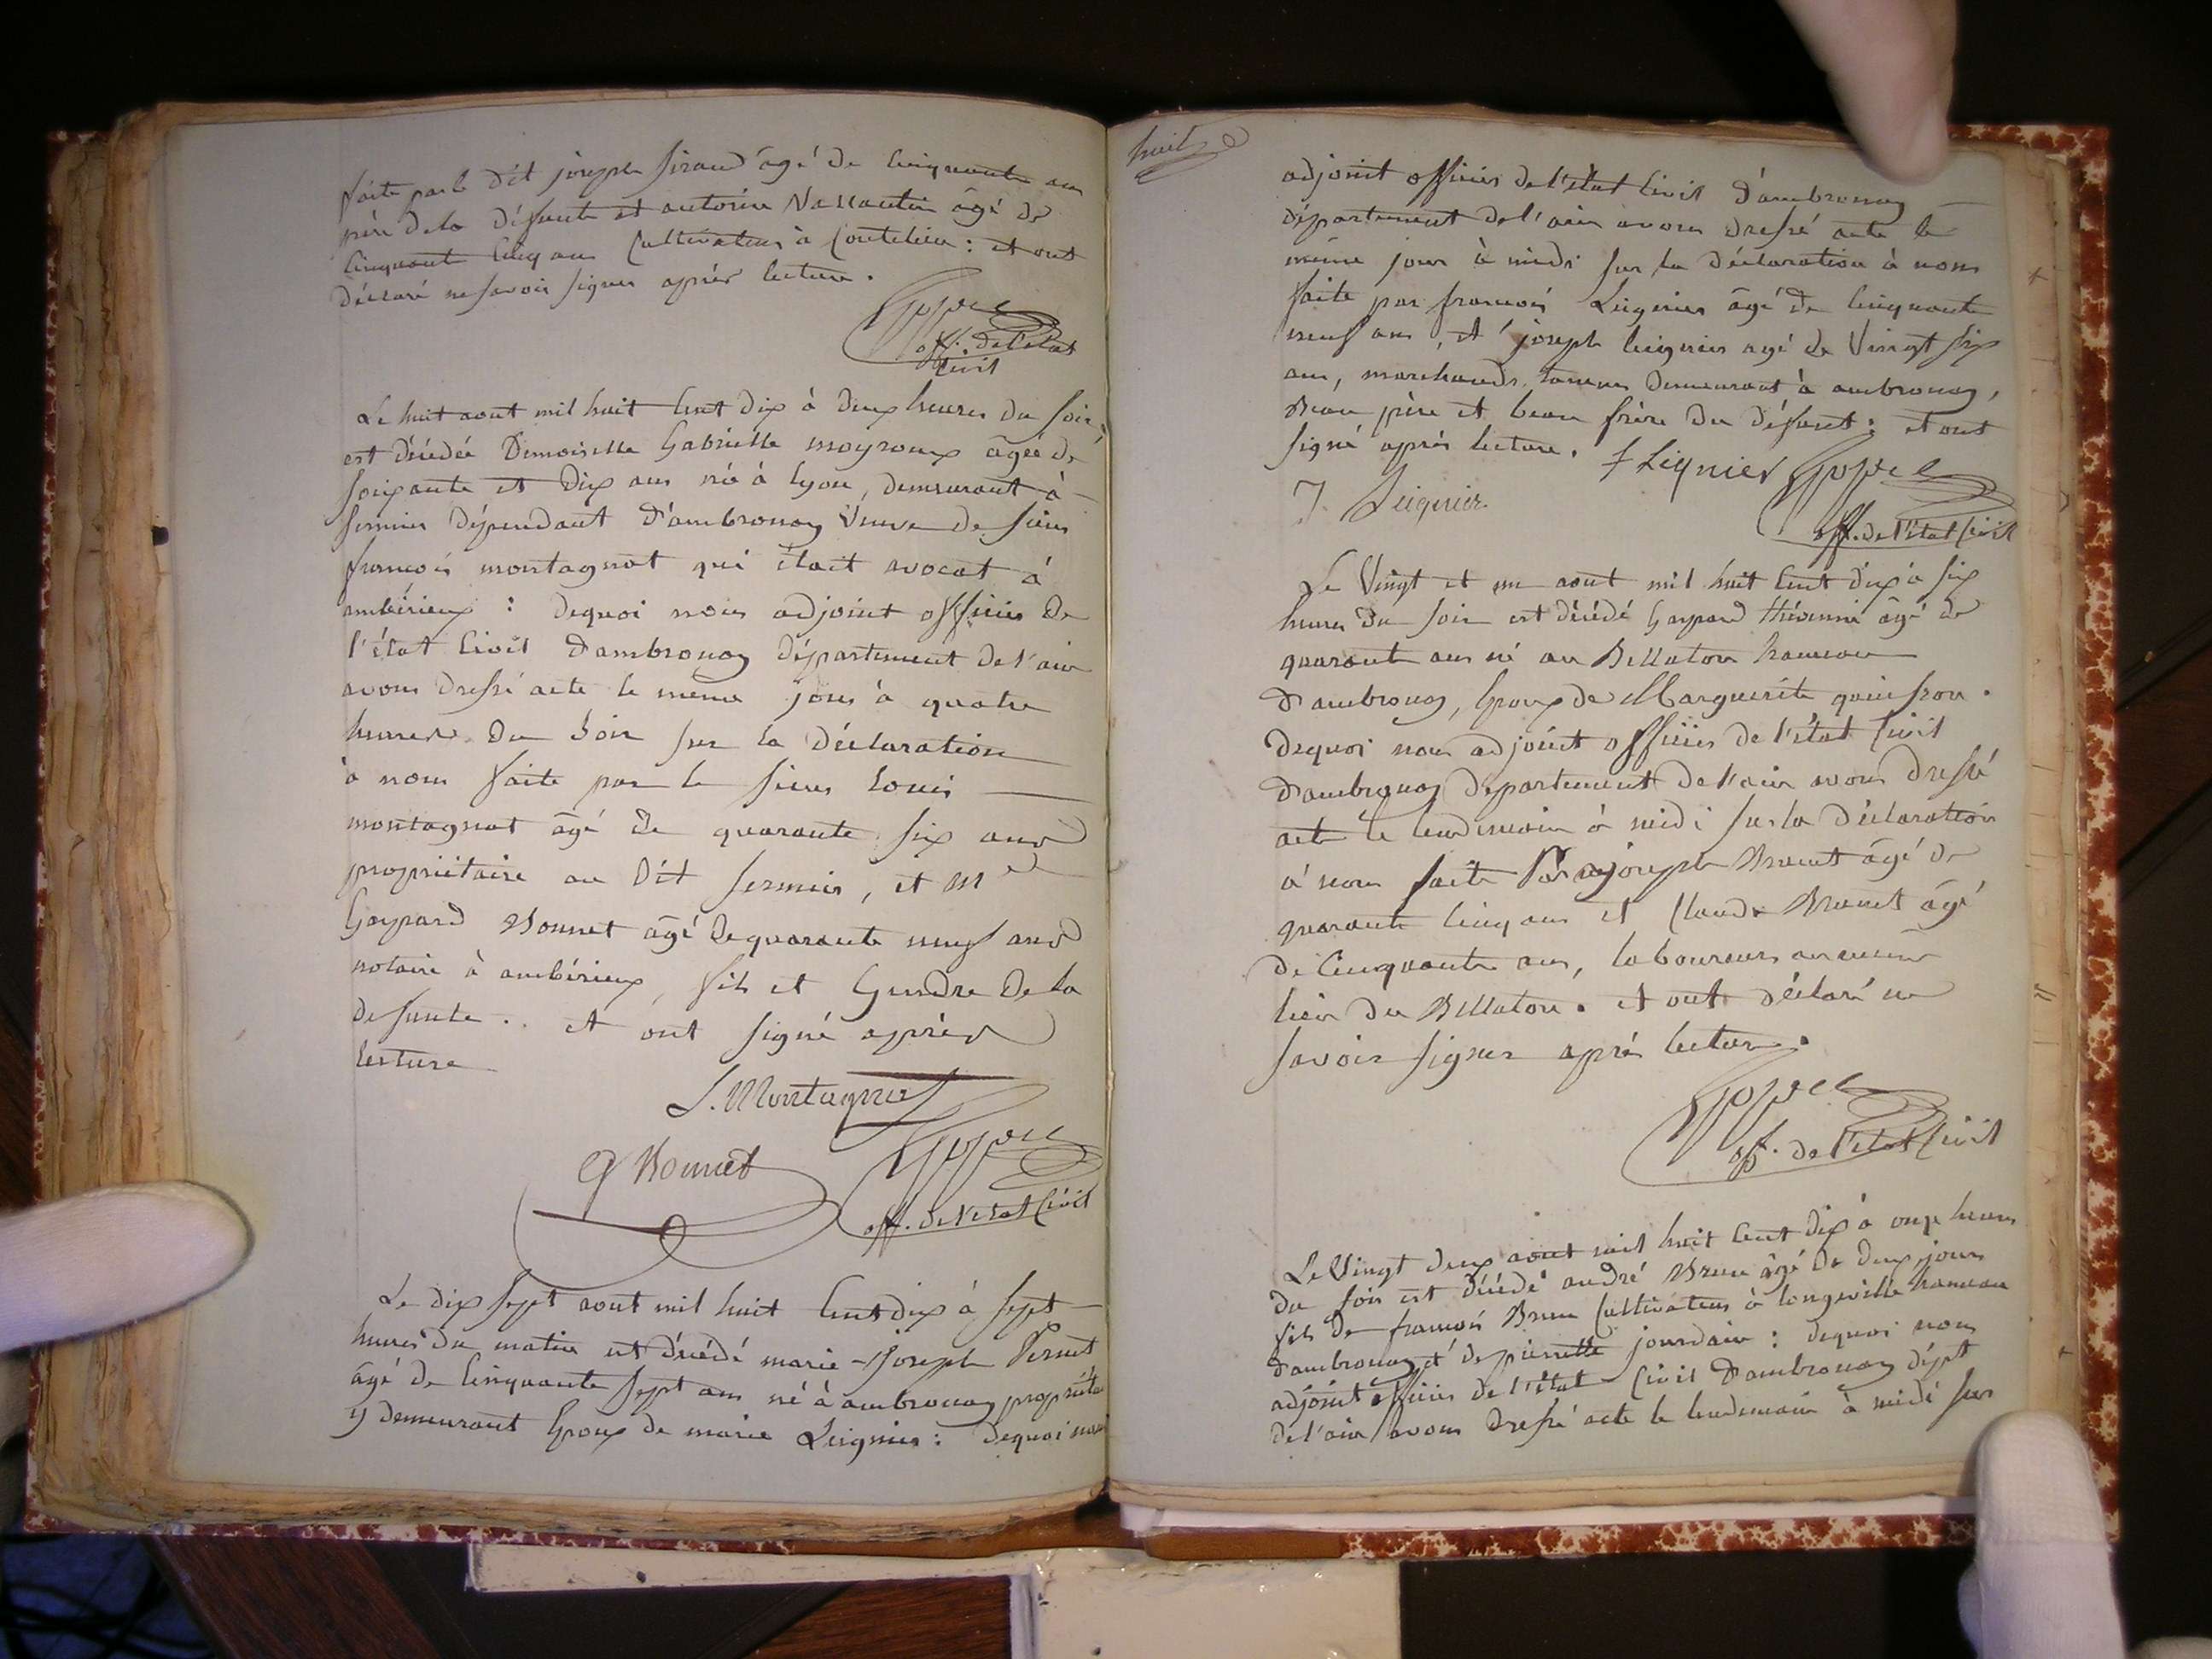 faite par le dit joseph siraud âgé de cinquante ans
père dela défunte et antoine Vassautin âgé de
cinquante cinq ans Cultivateurs à Coutelieu : et ont
déclaré ne savoir signer après lecture.
off. de l'etat
Civil
Le huit aout mil huit Cent dix à deux heures du soir,
est décédée Demoiselle Gabrielle moyroux âgée de
soixante et dix ans né à lyon, demeurant à
sermier dépendant d'ambronay Veuve de sieur
francois montagnat qui était avocat à
ambérieux : dequoi nous adjoint officier de
l'état Civil d'ambronay département de l'ain
avons dressé acte le meme jour à quatre
heures du soir sur la déclaration
à nous faite par le sieur Louis
montagnat âgé de quarante six ans
propriétaire au dit sermier, et mr
Gaspard Bonnet âgé de quarante neuf ans
notaire à ambérieux, fils et Gendre de la
defunte.. et ont signé après
lecture
L. Montagnat
G Bonnet
off. de l'etat Civil
Le dix sept aout mil huit Cent dix à sept
heures du matin est décédé marie-joseph Pernet
âgé de Cinquante sept ans né à ambronay propriétaire
y demeurant Epoux de marie Leignier : dequoi nous
huit
adjoint officier de l'état Civil d'ambronay
département de l'ain avons dressé acte le
même jour à midi sur la déclaration à nous
faite par francois Leignier âgé de Cinquante
neuf ans, et joseph leignier agé de Vingt six
ans, marchands taneurs demeurant à ambronay,
Beau père et beau frère du défunt : et ont
signé après lecture. f Lignier
J. Leignier
off. de l'état Civil
Le Vingt et un aout mil huit Cent dix à six
heures du soir est décédé Gaspard thévenin âgé de
quarante ans né au Bellaton hameau
d'ambronay, Epoux de Marguerite quinson.
dequoi nous adjoint officier de l'état Civil
d'ambronay département de l'ain avons dressé
acte le lendemain à midi sur la déclaration
à nous faite Par joseph Brunet âgé de
quarante cinq ans et Claude Brunet âgé
de Cinquante ans, laboureurs au meme
lieu du Bellaton. et ont déclaré ne
savoir signer après lecture.
off. de l'etat Civil
Le Vingt deux aout mil huit Cent dix à onze heures
du soir est décédé andré Brun âgé de deux jours
fils de francois Brun Cultivateur à longeville hameau
d'ambronay et de pierrette jourdain : dequoi nous
adjoint officier de l'état Civil d'ambronay dépt
de l'ain avons dressé acte le lendemain à midi sur